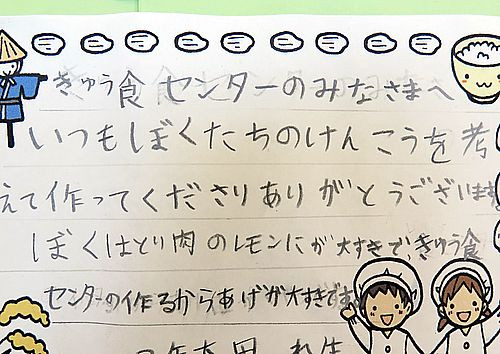 きゅう食センターのみなさまへ
いつもぼくたちのけんこうを考
えて作ってくださりありがとうございます
ぼくはとり肉のレモンにが大すきで、きゅう食
センターの作るからあげが大すきです。